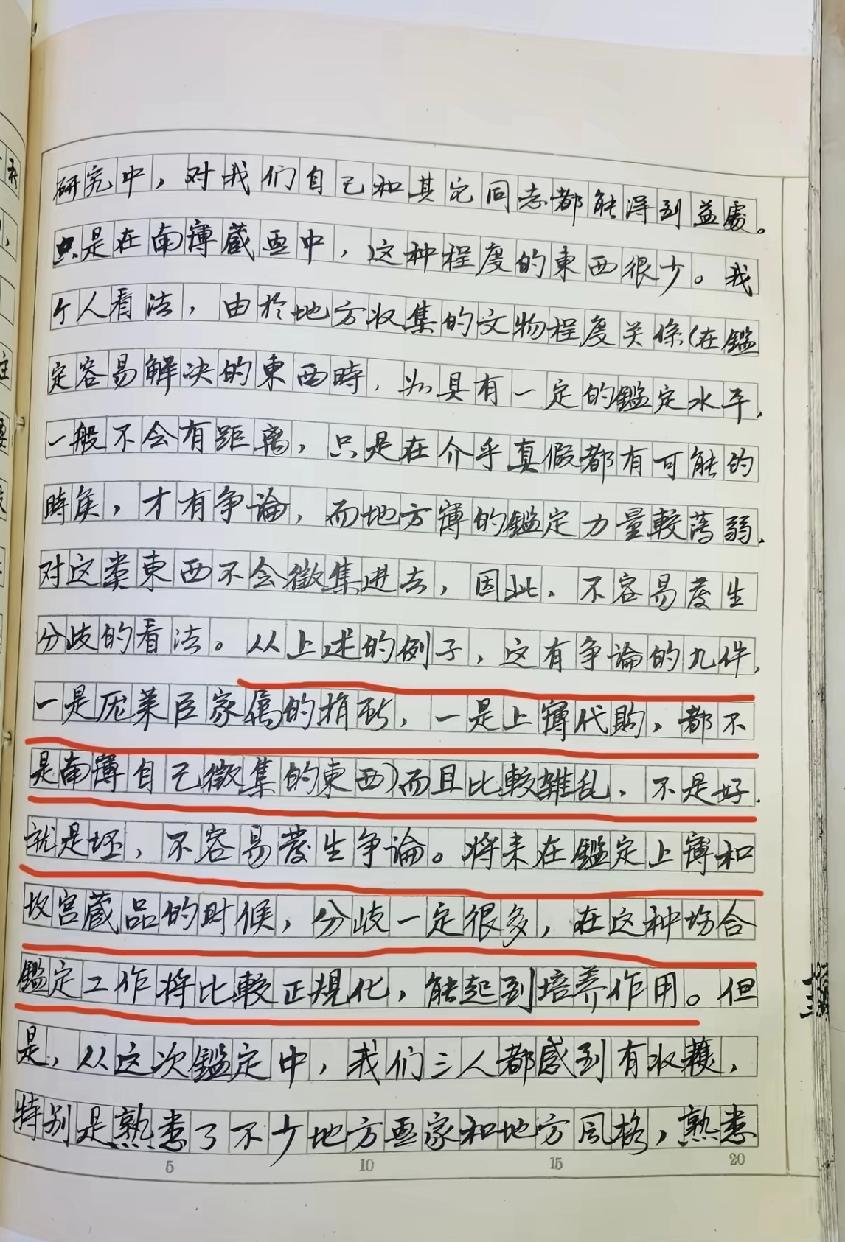 研究中，对我们自己和其它同志都能得到益處。
只是在南博藏画中，这种程度的東西很少。我
个人看法，由於地方收集的文物程度关係（在鑑
定容易解决的東西時，如具有一定的鑑定水平，
一般不会有距离，只是在介乎真假都有可能的
時候，才有争論，而地方博的鑑定力量較薄弱，
对这类東西不会徵集进去，因此，不容易發生
分歧的看法。从上述的例子，这有争論的九件，
一是庞莱臣家属的捐献，一是上博代購，都不
是南博自己徵集的東西）而且比較雜乱，不是好
就是坯，不容易發生争論。将来在鑑定上博和
故宫蔵品的时候，分歧一定很多，在这种场合
鑑定工作将比較正規化，能起到培养作用。但
是，从这次鑑定中，我们三人都感到有收穫，
特别是熟悉了不少地方画家和地方風格，熟悉
5 10 15 20